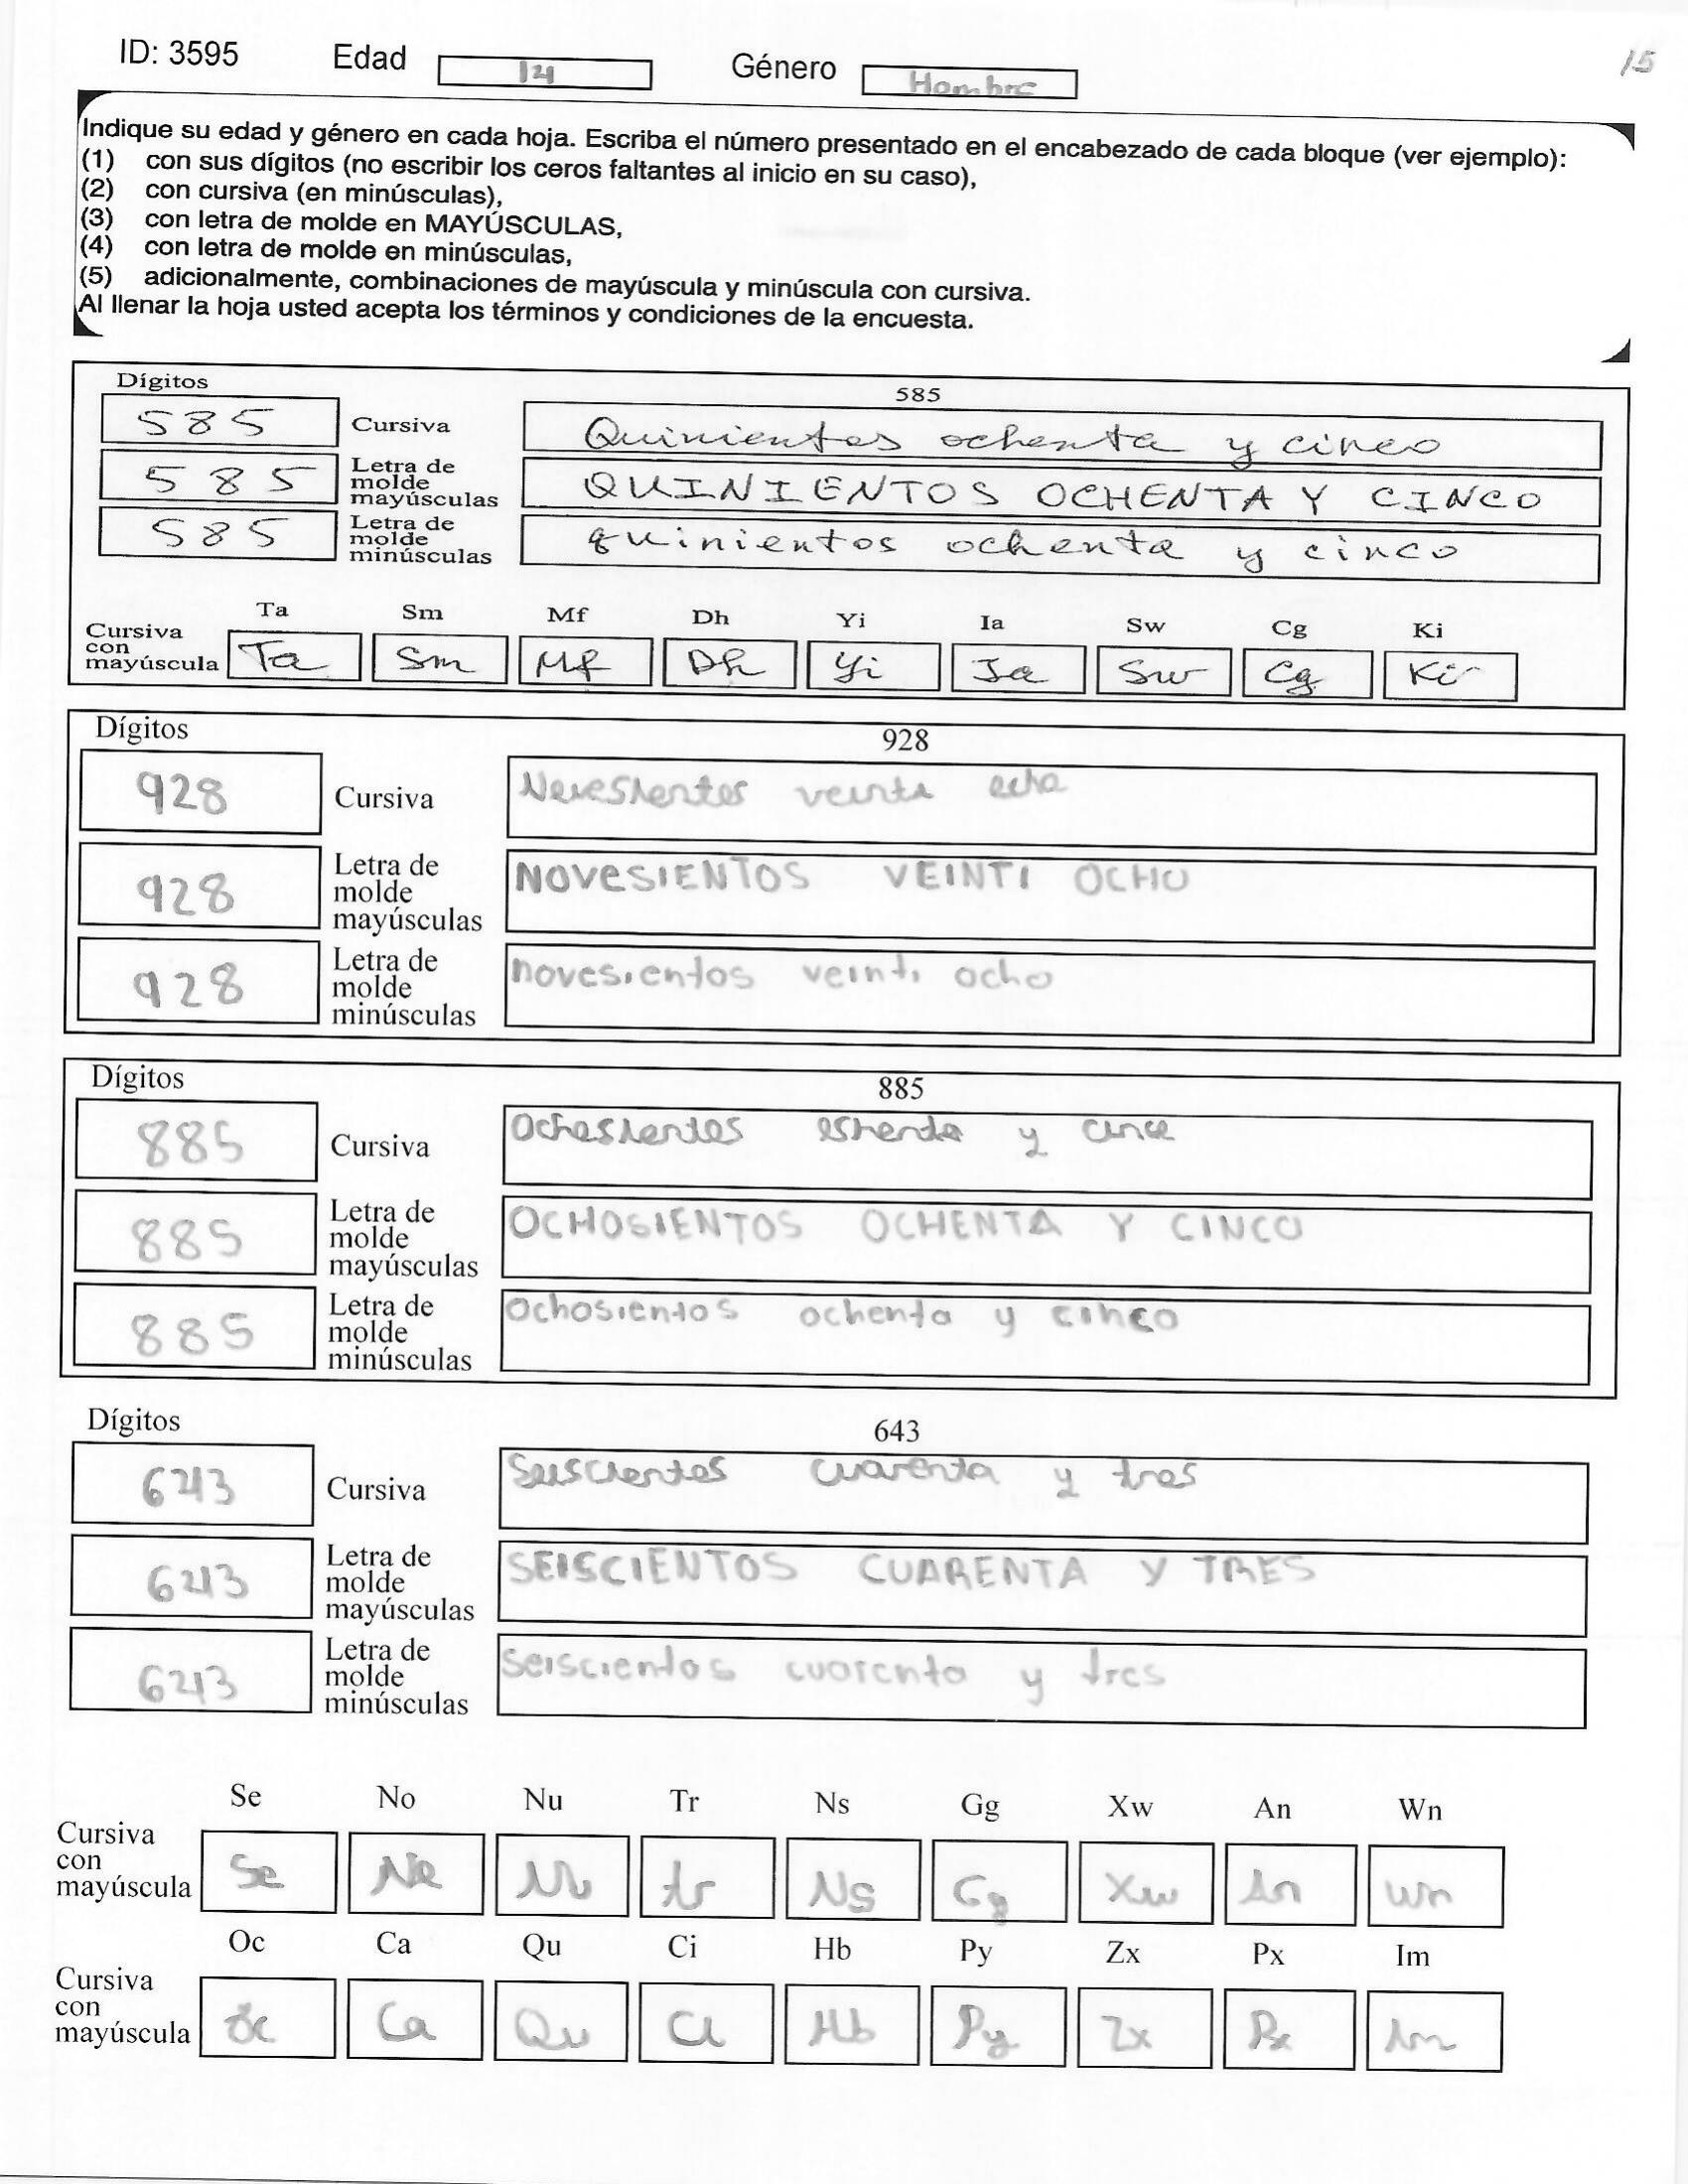 ID: 3595 Edad 14 Género Hombre 15
Indique su edad y género en cada hoja. Escriba el número presentado en el encabezado de cada bloque (ver ejemplo):
(1) con sus dígitos (no escribir los ceros faltantes al inicio en su caso),
(2) con cursiva (en minúsculas),
(3) con letra de molde en MAYÚSCULAS,
(4) con letra de molde en minúsculas,
(5) adicionalmente, combinaciones de mayúscula y minúscula con cursiva.
Al llenar la hoja usted acepta los términos y condiciones de la encuesta.
Dígitos 585
585 Cursiva Quinientos ochenta y cinco
585 Letra de molde mayúsculas QUINIENTOS OCHENTA Y CINCO
585 Letra de molde minúsculas quinientos ochenta y cinco
Ta Sm Mf Dh Yi Ia Sw Cg Ki
Cursiva con mayúscula Ta Sm Mf Dh Yi Ia Sw Cg Ki
Dígitos 928
928 Cursiva Novesientos veinti ocho
928 Letra de molde mayúsculas NOVESIENTOS VEINTI OCHO
928 Letra de molde minúsculas novesientos veinti ocho
Dígitos 885
885 Cursiva Ochosientos y cinco
885 Letra de molde mayúsculas OCHOSIENTOS OCHENTA Y CINCO
885 Letra de molde minúsculas Ochosientos ochenta y cinco
Dígitos 643
643 Cursiva Seiscientos cuarenta y tres
643 Letra de molde mayúsculas SEISCIENTOS CUARENTA Y TRES
643 Letra de molde minúsculas Seiscientos cuarenta y tres
Se No Nu Tr Ns Gg Xw An Wn
Cursiva con mayúscula Se No Nu tr Ns Gg Xw An wn
Oc Ca Qu Ci Hb Py Zx Px Im
Cursiva con mayúscula Oc Ca Qu Ci Hb Py Zx Px Im